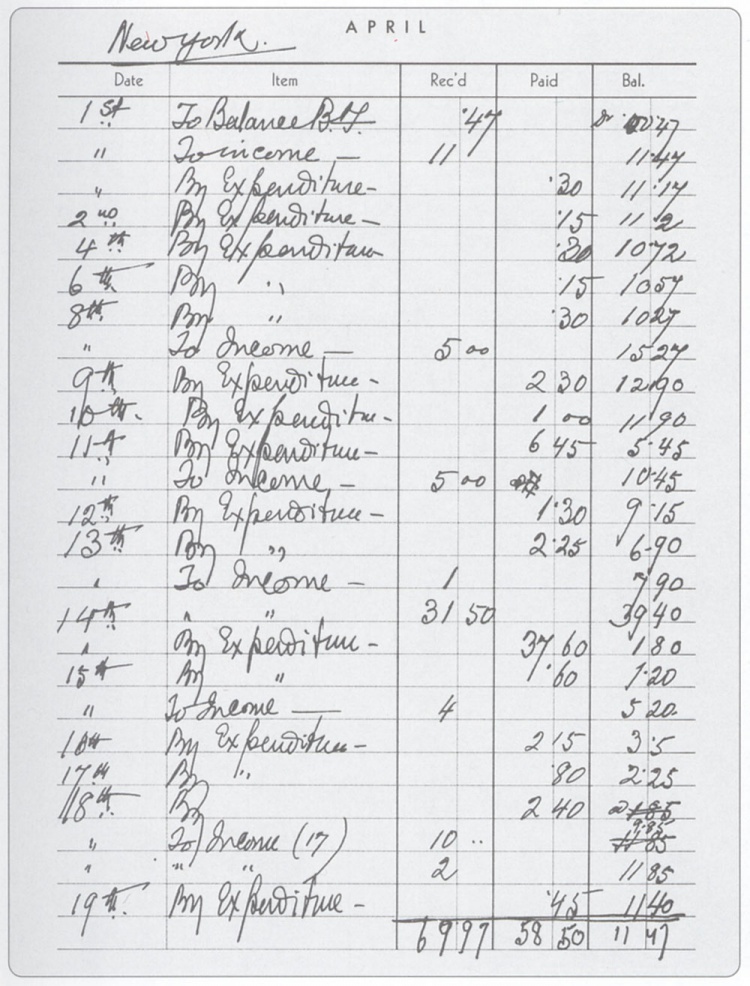 APRIL
New York.
Date Item Rec'd Paid Bal.
1st To Balance B.F. .47 Dr 0047
" To income — 11 11.47
" By Expenditure - .30 11.17
2nd By Expenditure - .15 11 2
4th By Expenditure .30 10 72
6th By " .15 10 57
8th By " .30 10 27
" To Income — 5 00 15 27
9th By Expenditure - 2 30 12.90
10th. By Expenditure - 1 00 11 90
11th By Expenditure - 6 45 5.45
" To Income - 5 00 10.45
12th By Expenditure - 1.30 9.15
13th By " 2.25 6.90
" To Income - 1 7 90
14th " " 31 50 39 40
" By Expenditure - 37 60 1 80
15th By " .60 1.20
" To Income — 4 5 20.
16th By Expenditure - 2 15 3.5
17th By " .80 2.25
18th By 2 40
9.85
" To Income (17) 10 ..
" " " 2 11 85
19th. By Expenditure - .45 11 40
69 97 58 50 11 47